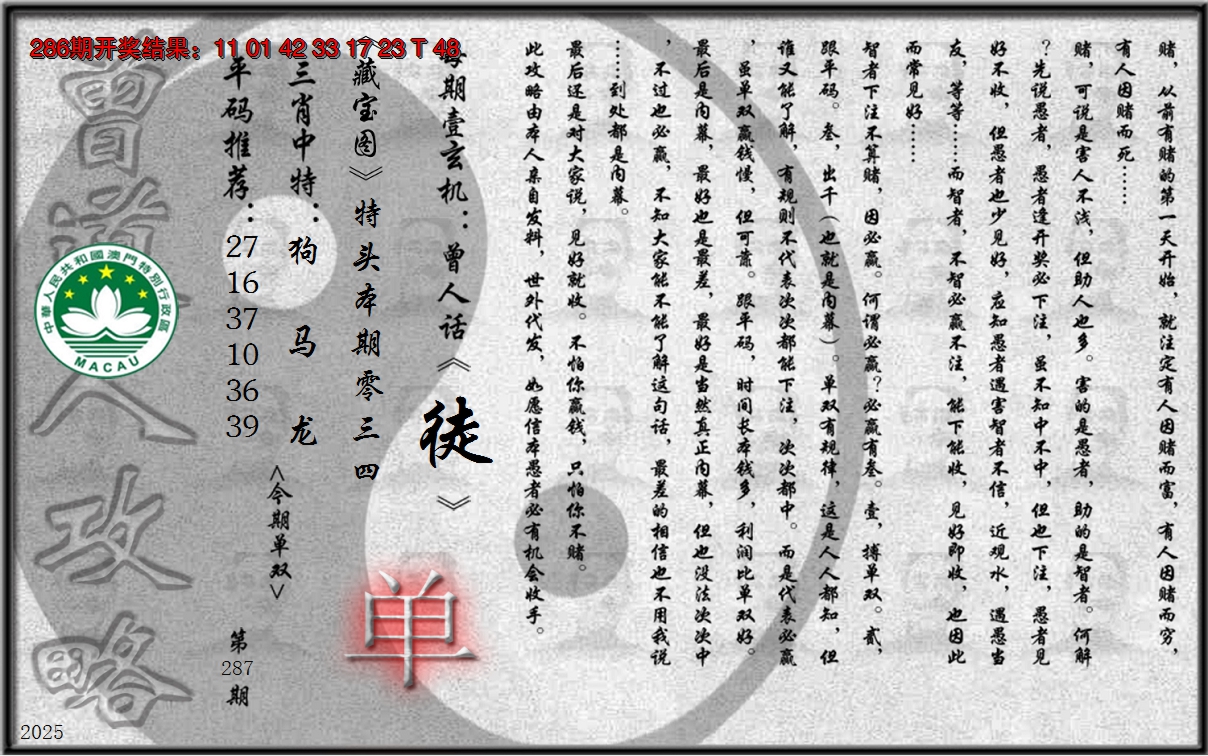 286期开奖结果：11 01 42 33 17 23 T 48
赌，从前有赌的第一天开始，就注定有人因赌而富，有人因赌而穷，
有人因赌而死……
赌，可说是害人不浅，但助人也多。害的是愚者，助的是智者。何解
？先说愚者，愚者逢开奖必下注，虽不知中不中，但也下注，愚者见
好不收，但愚者也少见好，应知愚者遇害智者不信，近观水，遇愚当
友，等等……而智者，不智必赢不注，能下能收，见好即收，也因此
而常见好……
智者下注不算赌，因必赢。何谓必赢？必赢有叁。壹，搏单双。贰，
跟平码。叁，出千（也就是内幕）。单双有规律，这是人人都知，但
谁又能了解，有规则不代表次次都能下注，次次都中。而是代表必赢
，虽单双赢钱慢，但可靠。跟平码，时间长本钱多，利润比单双好。
最后是内幕，最好也是最差，最好是当然真正内幕，但也没法次次中
，不过也必赢，不知大家能不能了解这句话，最差的相信也不用我说
……到处都是内幕。
最后还是对大家说，见好就收。不怕你赢钱，只怕你不赌。
此攻略由本人亲自发料，世外代发，如愿信本愚者必有机会收手。
每期壹玄机：曾人话《徒》
《藏宝图》特头本期零三四
单
三肖中特：狗 马 龙
<今期单双>
平码推荐：
27
16
37
10
36
39
第
287
期
曾道人攻略
中華人民共和國澳門特別行政區
MACAU
2025